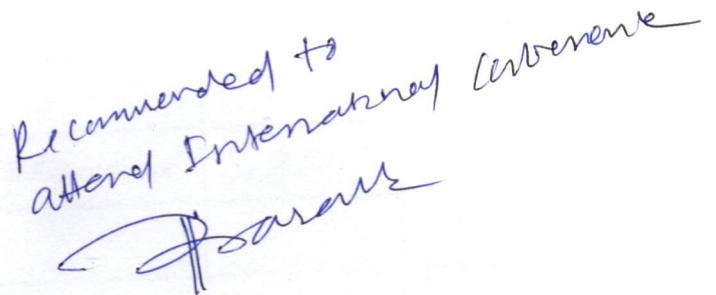 Recommended to
attend International Conference